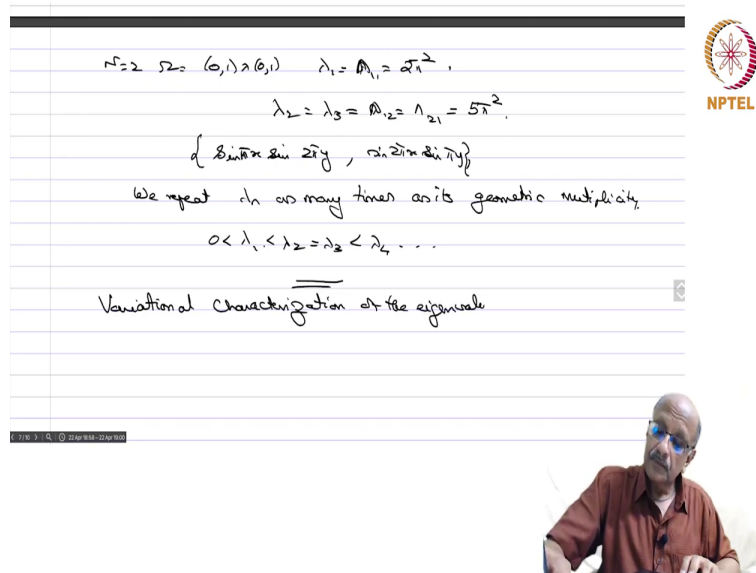 N=2 Ω= (0,1)×(0,1) λ₁ = Λ₁₁ = 2π².
λ₂ = λ₃ = Λ₁₂ = Λ₂₁ = 5π².
{ sin πx sin 2πy , sin 2πx sin πy }
We repeat λn as many times as its geometric multiplicity.
0 < λ₁ < λ₂ = λ₃ < λ₄ ...
Variational characterization of the eigenvale
NPTEL
7/10 22 Apr 18:58 – 22 Apr 19:00